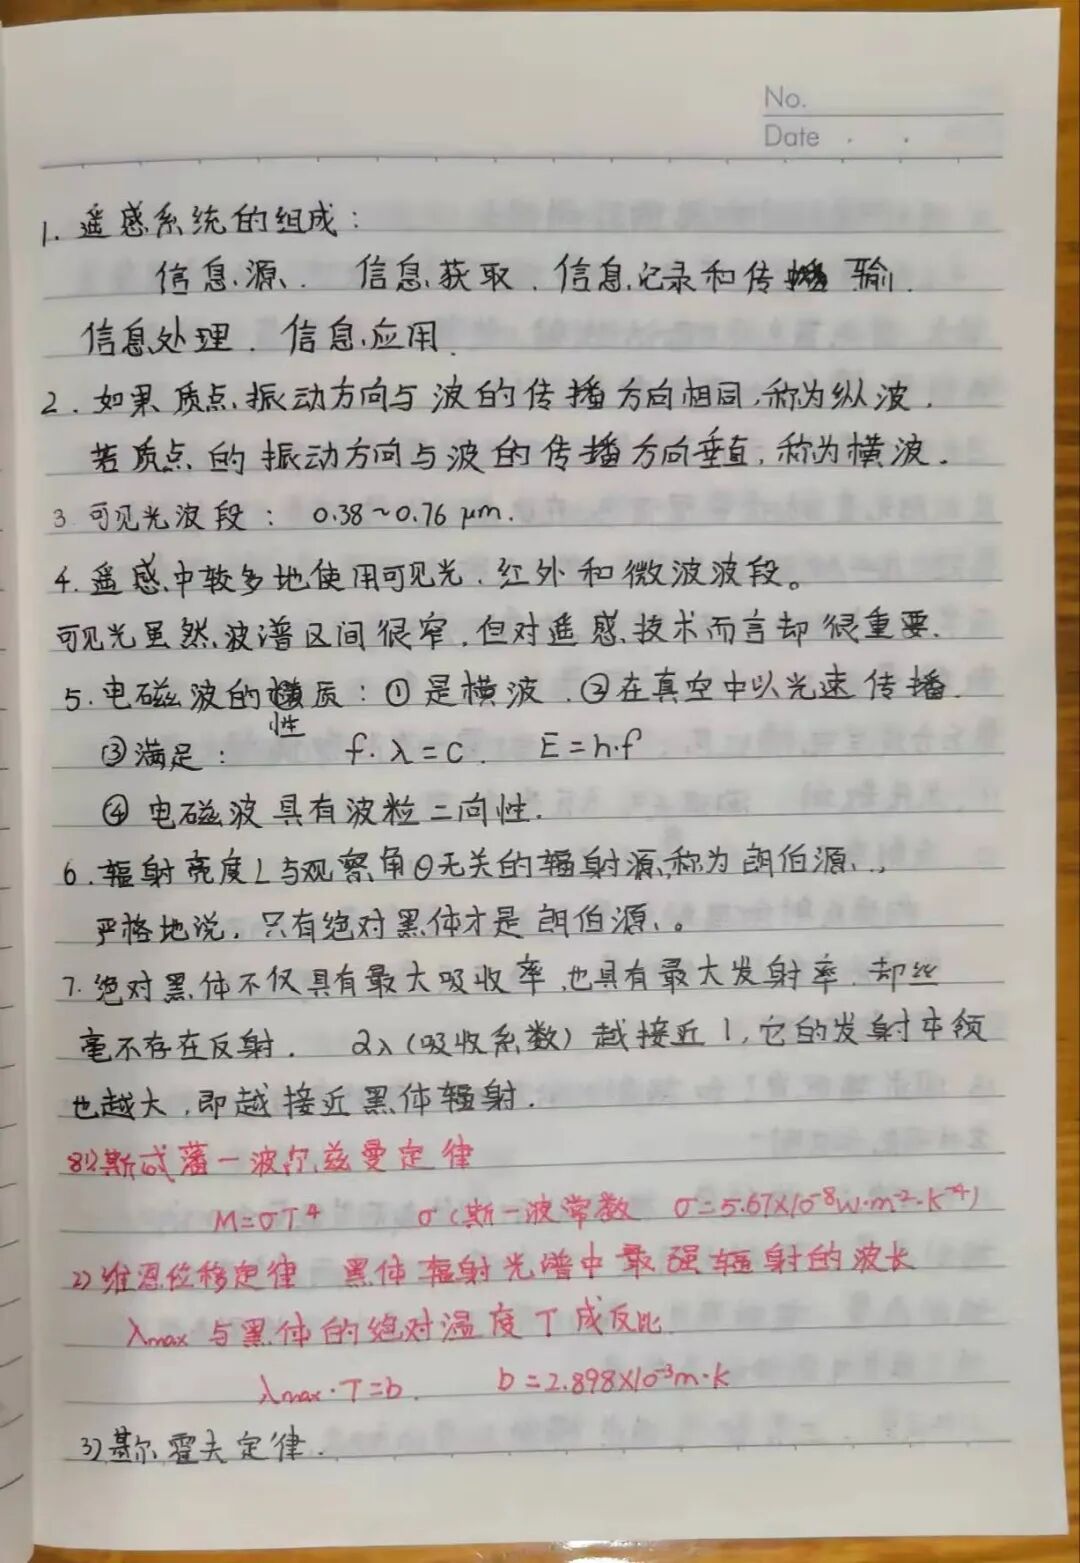 No.
Date
1. 遥感系统的组成：
信息源、 信息获取、信息记录和传输、
信息处理、信息应用.
2. 如果质点振动方向与波的传播方向相同,称为纵波.
若质点的振动方向与波的传播方向垂直,称为横波.
3. 可见光波段： 0.38~0.76 μm.
4. 遥感中较多地使用可见光、红外和微波波段。
可见光虽然波谱区间很窄,但对遥感技术而言却很重要.
5. 电磁波的性质：①是横波 .②在真空中以光速传播.
③满足： f·λ=c. E=h·f
④ 电磁波具有波粒二向性.
6. 辐射亮度L与观察角θ无关的辐射源,称为朗伯源、.,
严格地说,只有绝对黑体才是朗伯源、。
7. 绝对黑体不仅具有最大吸收率,也具有最大发射率.却丝
毫不存在反射. αλ(吸收系数)越接近1,它的发射本领
也越大,即越接近黑体辐射.
8.1)斯忒藩-波尔兹曼定律
M=σT⁴ σ(斯-波常数 σ=5.67×10⁻⁸W·m⁻²·K⁻⁴)
2)维恩位移定律 黑体辐射光谱中最强辐射的波长
λmax与黑体的绝对温度T成反比
λmax·T=b. b=2.898×10⁻³m·k
3)基尔霍夫定律.